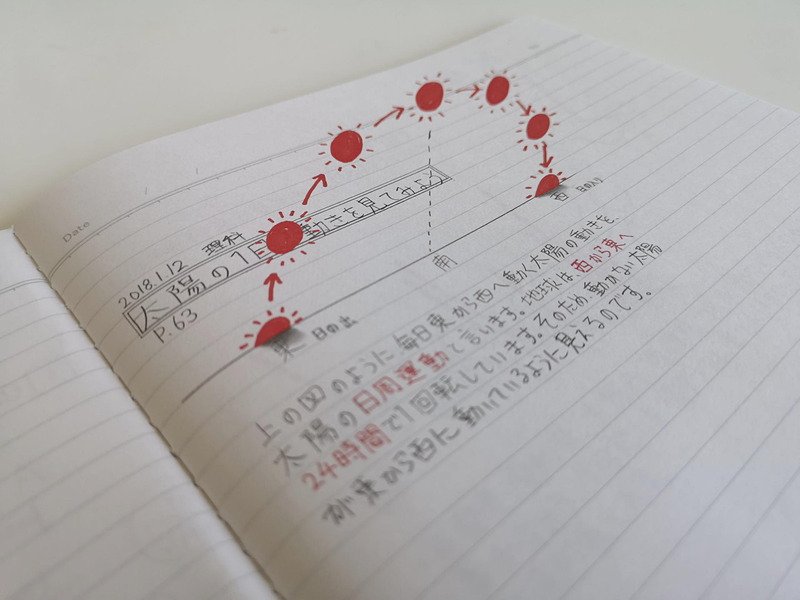 Date
2018.1.12 理科
太陽の1日 動きを見てみよう
P.63
東 日の出
南
西 日の入り
上の図のように毎日東から西へ動く太陽の動きを、
太陽の日周運動と言います。地球は、西から東へ
24時間で1回転しています。そのため動かない太陽
が東から西に動いているように見えるのです。